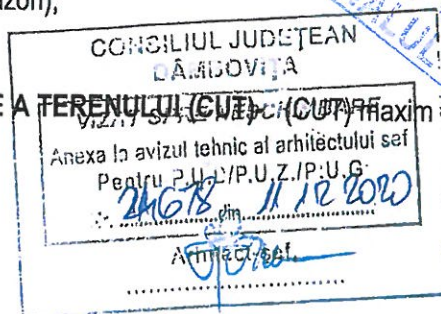 CONSILIUL JUDEȚEAN
DÂMBOVIȚA
E A TERENULUI (CUT) (CUT) maxim
Anexa la avizul tehnic al arhitectului șef
Pentru P.U.D/P.U.Z./P.U.G.
24678 din 11 12 2020
Arhitect șef,